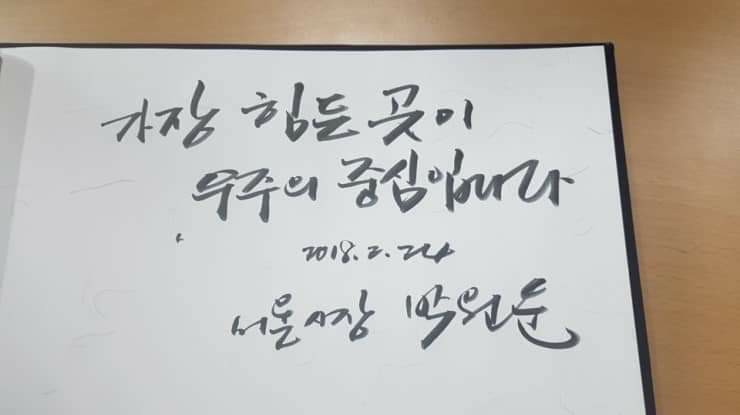 가장 힘든 곳이
우주의 중심입니다
2018. 2. 24
서울시장 박원순